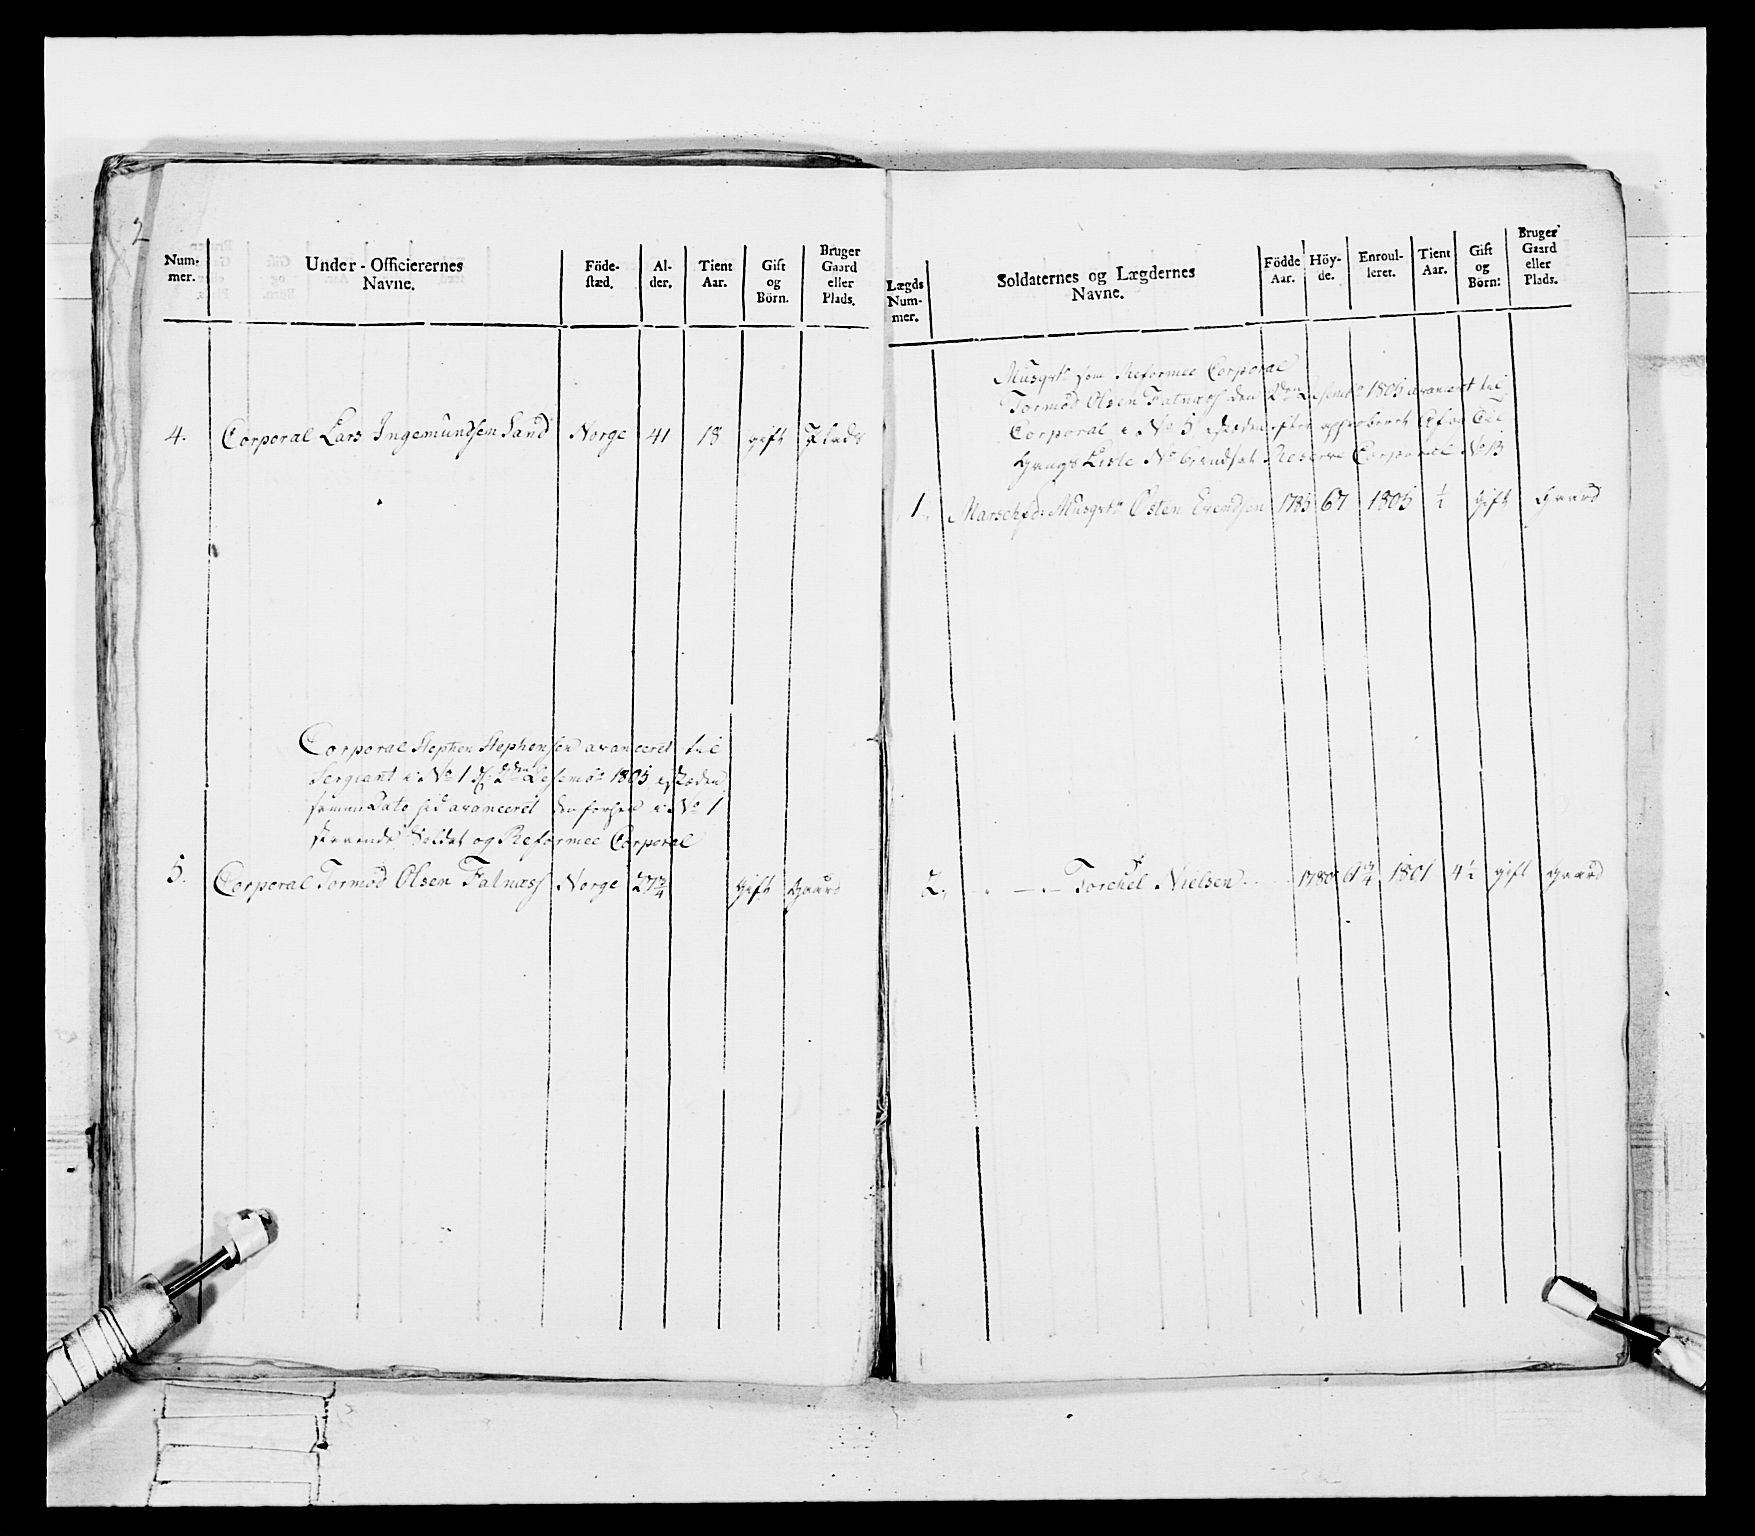 2
Num-
mer.
Under-Officierernes
Navne.
Föde-
stæd.
Al-
der.
Tient
Aar.
Gift
og
Börn.
Bruger
Gaard
eller
Plads.
4. Corporal Lars Ingemundsen Sand Norge 41 18 gift Plads
Corporal Stephen Stephensen avanceret til
Sergiant i No 1 2den Desembr 1805 isteden
samme Dato hid avanceret den forhen i No 1
staaende Soldat og Reformee Corporal
5. Corporal Tormod Olsen Fatnæss Norge 27 3/4 Gift Gaard
Lægds
Num-
mer.
Soldaternes og Lægdernes
Navne.
Födde
Aar.
Höy-
de.
Enroul-
leret.
Tient
Aar.
Gift
og
Börn:
Bruger
Gaard
eller
Plads.
Musqvtr som Reformee Corporal
Tormod Olsen Fatnæss den 2den Desembr 1805 avanceret til
Corporal i No 5 isteden efter approberet
Gangs Liste No 6, Reserve Corporal No 13
1. Marschfd: Musqvtr Østen Evendsen 1785 67 1805 1/2 Gift Gaard
2. — Torchel Nielsen 1780 61 3/4 1801 4 1/2 gift Gaard